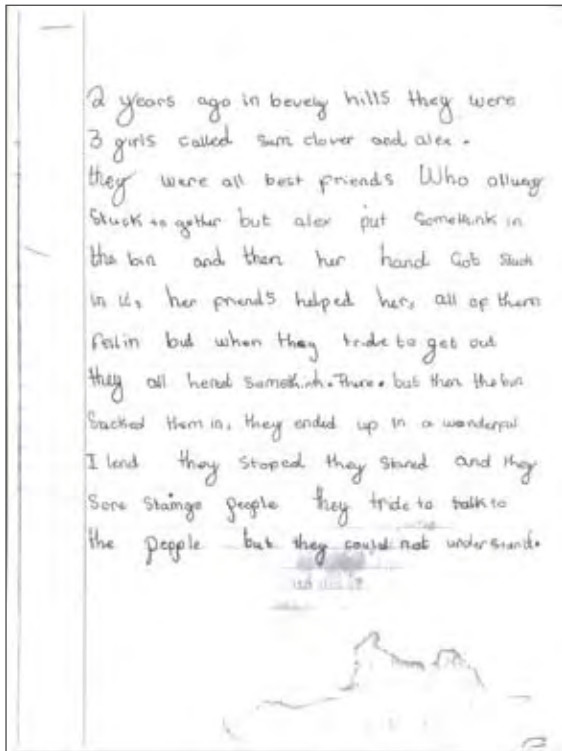 2 years ago in bevely hills they were
3 girls called sam clover and alex.
they were all best friends Who allway
Stuck to gether but alex put Somethink in
the bin and then her hand Got Stuck
in it, her friends helped her, all of them
fell in but when they tride to get out
they all herd somethink. There. but then the bin
Sucked them in, they ended up in a wonderful
I lend they stoped they stared and they
Sore strainge people they tride to talk to
the people but they could not understand.